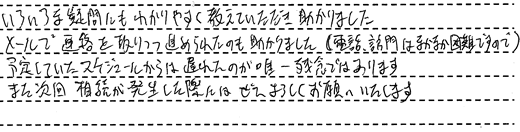 いろいろ手疑問にもわかりやすく教えていただき助かりました
メールで連絡を取りつつ進められたのも助かりました(電話、訪問はなかなか困難ですので)
予定していたスケジュールからは遅れたのが唯一残念ではあります
また次回 相続が発生した際には ぜひよろしくお願いいたします